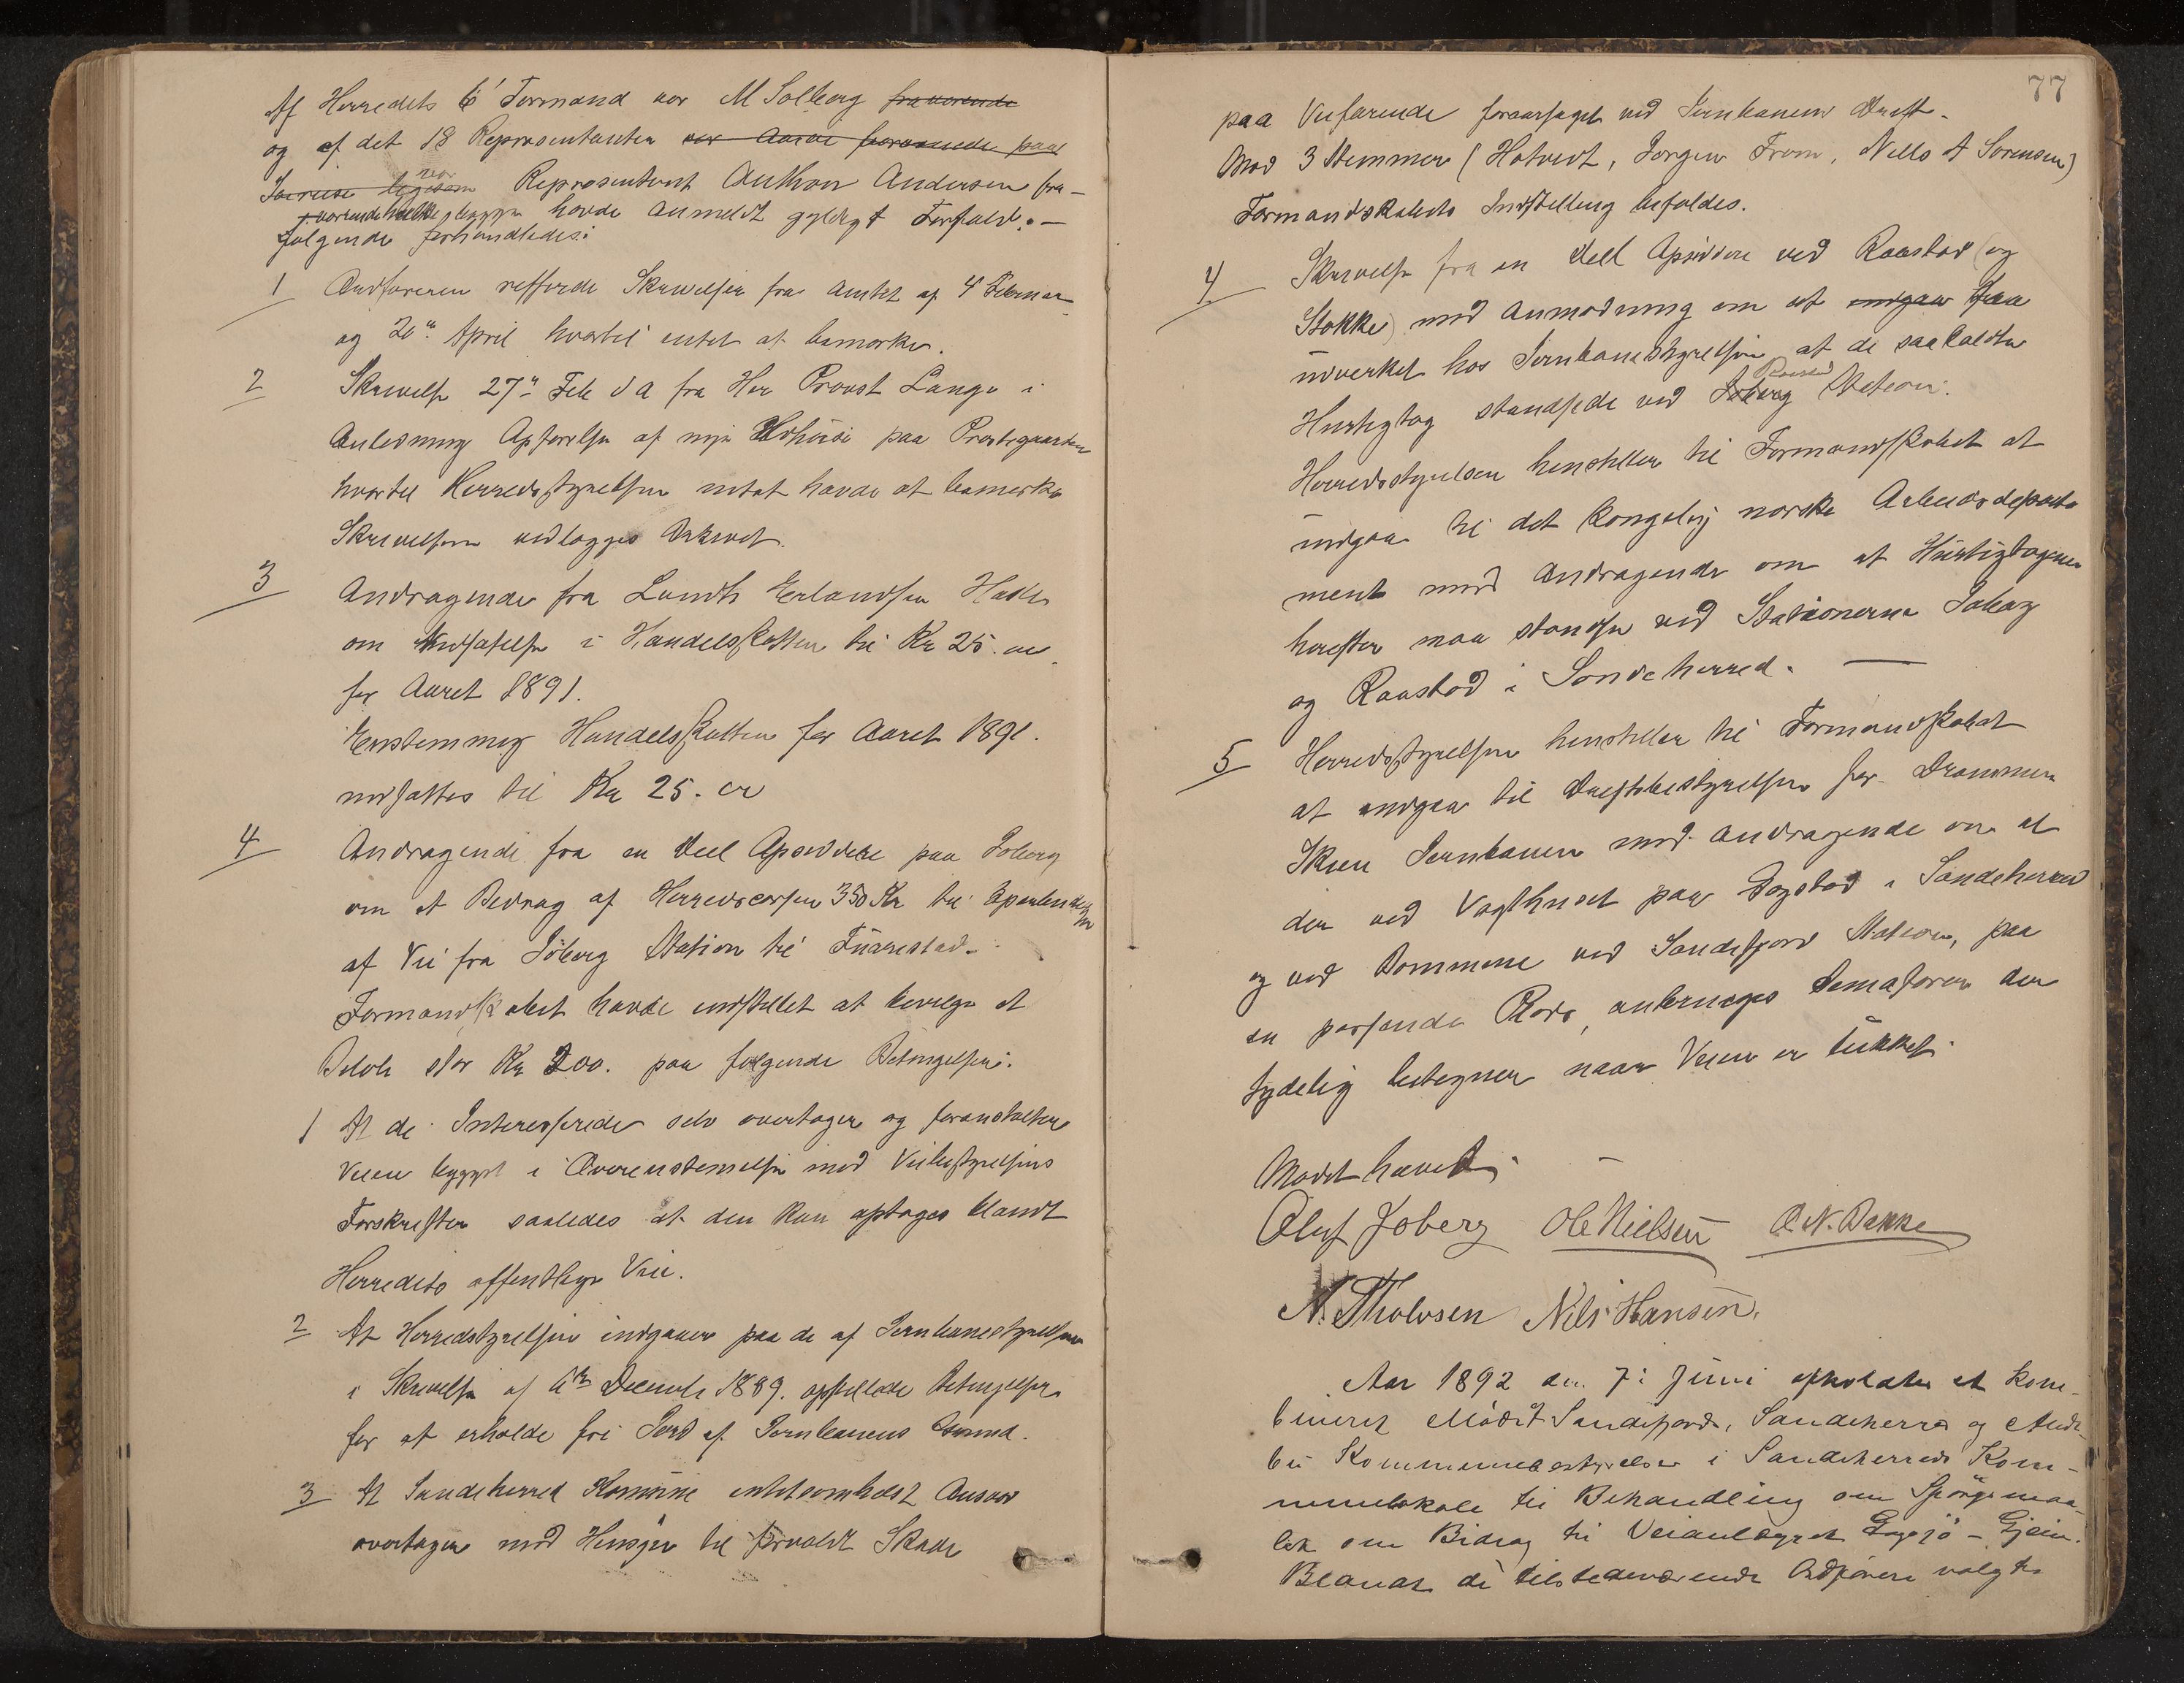 Af Herredets 6' Formænd var M Solberg fraværende
og af det 18 Repræsentanter
var Repræsentant Anthon Andersen fra-
værende hvilke begge havde anmeldt gyldigt Forfald. —
følgende forhandledes:
1 Ordføreren refferede Skrivelser fra Amtet af 4 Februar
og 20de April hvortil intet at bemærke.
2 Skrivelse 27de Feb d A fra Her Provst Lange i
Anledning Opførelse af nye Udhuse paa Prestegaarden
hvortil Herredsstyrelsen intet havde at bemerke
Skrivelsen vedlægges Arkivet.
3 Andragende fra Lundts Erlandsen
om Nedsættelse i Handelsskatten til Kr 25. ør
for Aaret 1891.
Enstemmig Handelsskatten for Aaret 1891.
nedsattes til Kr 25. ør
4 Andragende fra en Deel Opsiddere paa Joberg
om et Bedrag af Herredscassen 350 Kr til Oparbeidelse
af Vei fra Joberg Station til Furrestad.
Formandskabet havde indstillet at bevilge et
Beløb stor Kr 200. paa følgende Betingelser:
1 At de Interesserede selv overtager og foranstalter
Veien bygget i Overenstemelse med Veibestyrelsens
Forskrifter saaledes at den kan optages blandt
Herredets offentlige Veie.
2 At Herredstyrelsen indgaaer paa de af Jernbanestyrelsen
i Skrivelse af 6te Decemb 1889. opstillede Betingelser
for at erholde fri Jord af Jernbanens Grund.
3 At Sandeherred Komune intetsomhelst Ansvar
overtager med Hensyn til forvoldt Skade
77
paa Veifarende foraarsaget ved Jernbanens Drift.
Mod 3 Stemmer (Hotvedt, Jørgen From, Nells A Sørensen)
Formandskabets Indstilling bifaldes.
4 Skrivelse fra en Deel Opsiddere ved Raastad (og
Stokke) med Anmodning om at indgaa faa
udverket hos Jernbanestyrelsen at de saakaldte
Raastad
Hurtigtog standsede ved Joberg Station.
Herredsstyrelsen henstiller til Formandskabet at
indgaa til det kongelig norske Arbeidsdeparte
ment med Andragende om at Hurtigtogene
herefter maa standse ved Stationerne Joberg
og Raastad i Sandeherred. —
5 Herredsstyrelsen henstiller til Formandskabet
at indgaa til Driftsbestyrelsen for Drammen
Skien Jernbanen med Andragende om at
der ved Vagthuset paa Bogstad i Sandeherred
og ved Bommene ved Sandefjord Station, paa
en passende Maade, anbringes Semaforer der
tydelig betegner naar Veien er lukket.
Mødet hævet.
Oluf Joberg Ole Nielsen O. N. Bakke
N. Tholvsen Nils Hansen.
Aar 1892 den 7: Juni afholdtes et kom-
bineret Mødet Sandefjords, Sandeherred og Ande-
bu Kommunebestyrelser i Sandeherreds Kom-
munelokale til Behandling om Spørgsmaa-
let om Bidrag til Veianlægget Gogsjø - Gjein.
Blandt de tilstedeværende Ordførere valgtes